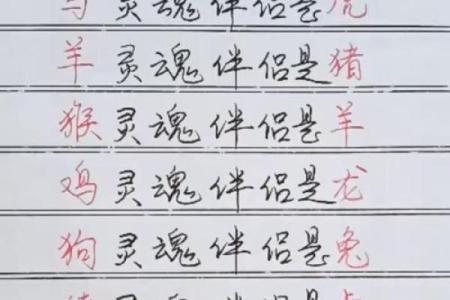 马灵魂伴侣是虎
羊灵魂伴侣是猪
猴灵魂伴侣是羊
鸡灵魂伴侣是龙
狗灵魂伴侣是兔
灵魂伴侣是